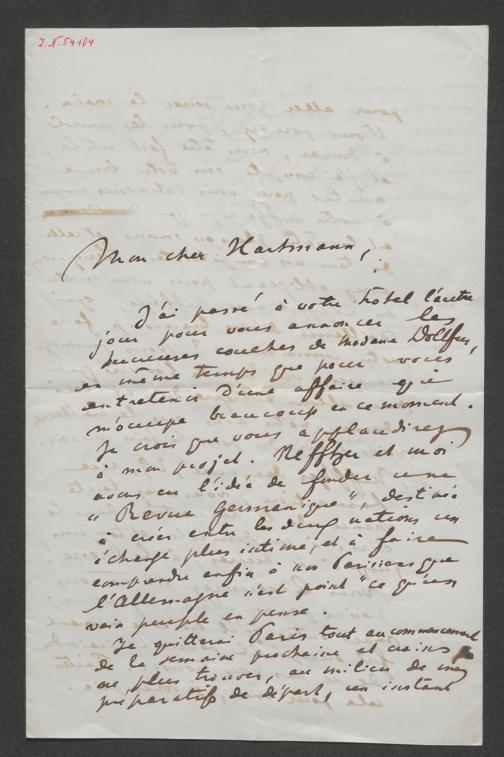 J. N. 54184
Mon cher Hartmann,
J'ai passé à votre hôtel l'autre
jour pour vous annoncer les
heureuses couches de madame Dollfus,
en même temps que pour vous
entretenir d'une affaire qui
m'occupe beaucoup en ce moment.
Je crois que vous applaudirez
à mon projet. Nefftzer et moi
avons eu l'idée de fonder une
"Revue Germanique", destinée
à créer entre les deux nations un
échange plus intime, et à faire
comprendre enfin à nos Parisiens que
l'Allemagne n'est point "ce qu'un
vain peuple en pense.
Je quitterai Paris tout au commencement
de la semaine prochaine et crains
ne plus trouver, au milieu de mes
préparatifs de départ, un instant